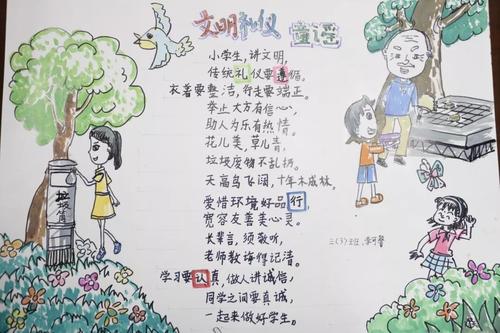 文明礼仪
童谣
小学生,讲文明,
传统礼仪要遵循。
衣着要整洁,行走要端正。
举止大方有信心,
助人为乐有热情。
花儿美,草儿青,
垃圾废物不乱扔。
天高鸟飞阔,十年木成林。
爱惜环境好品行,
宽容友善美心灵。
长辈言,须敬听,
老师教诲得记清。
学习要认真,做人讲诚信,
同学之间要真诚,
一起来做好学生。
垃圾箱
三(3)班,李